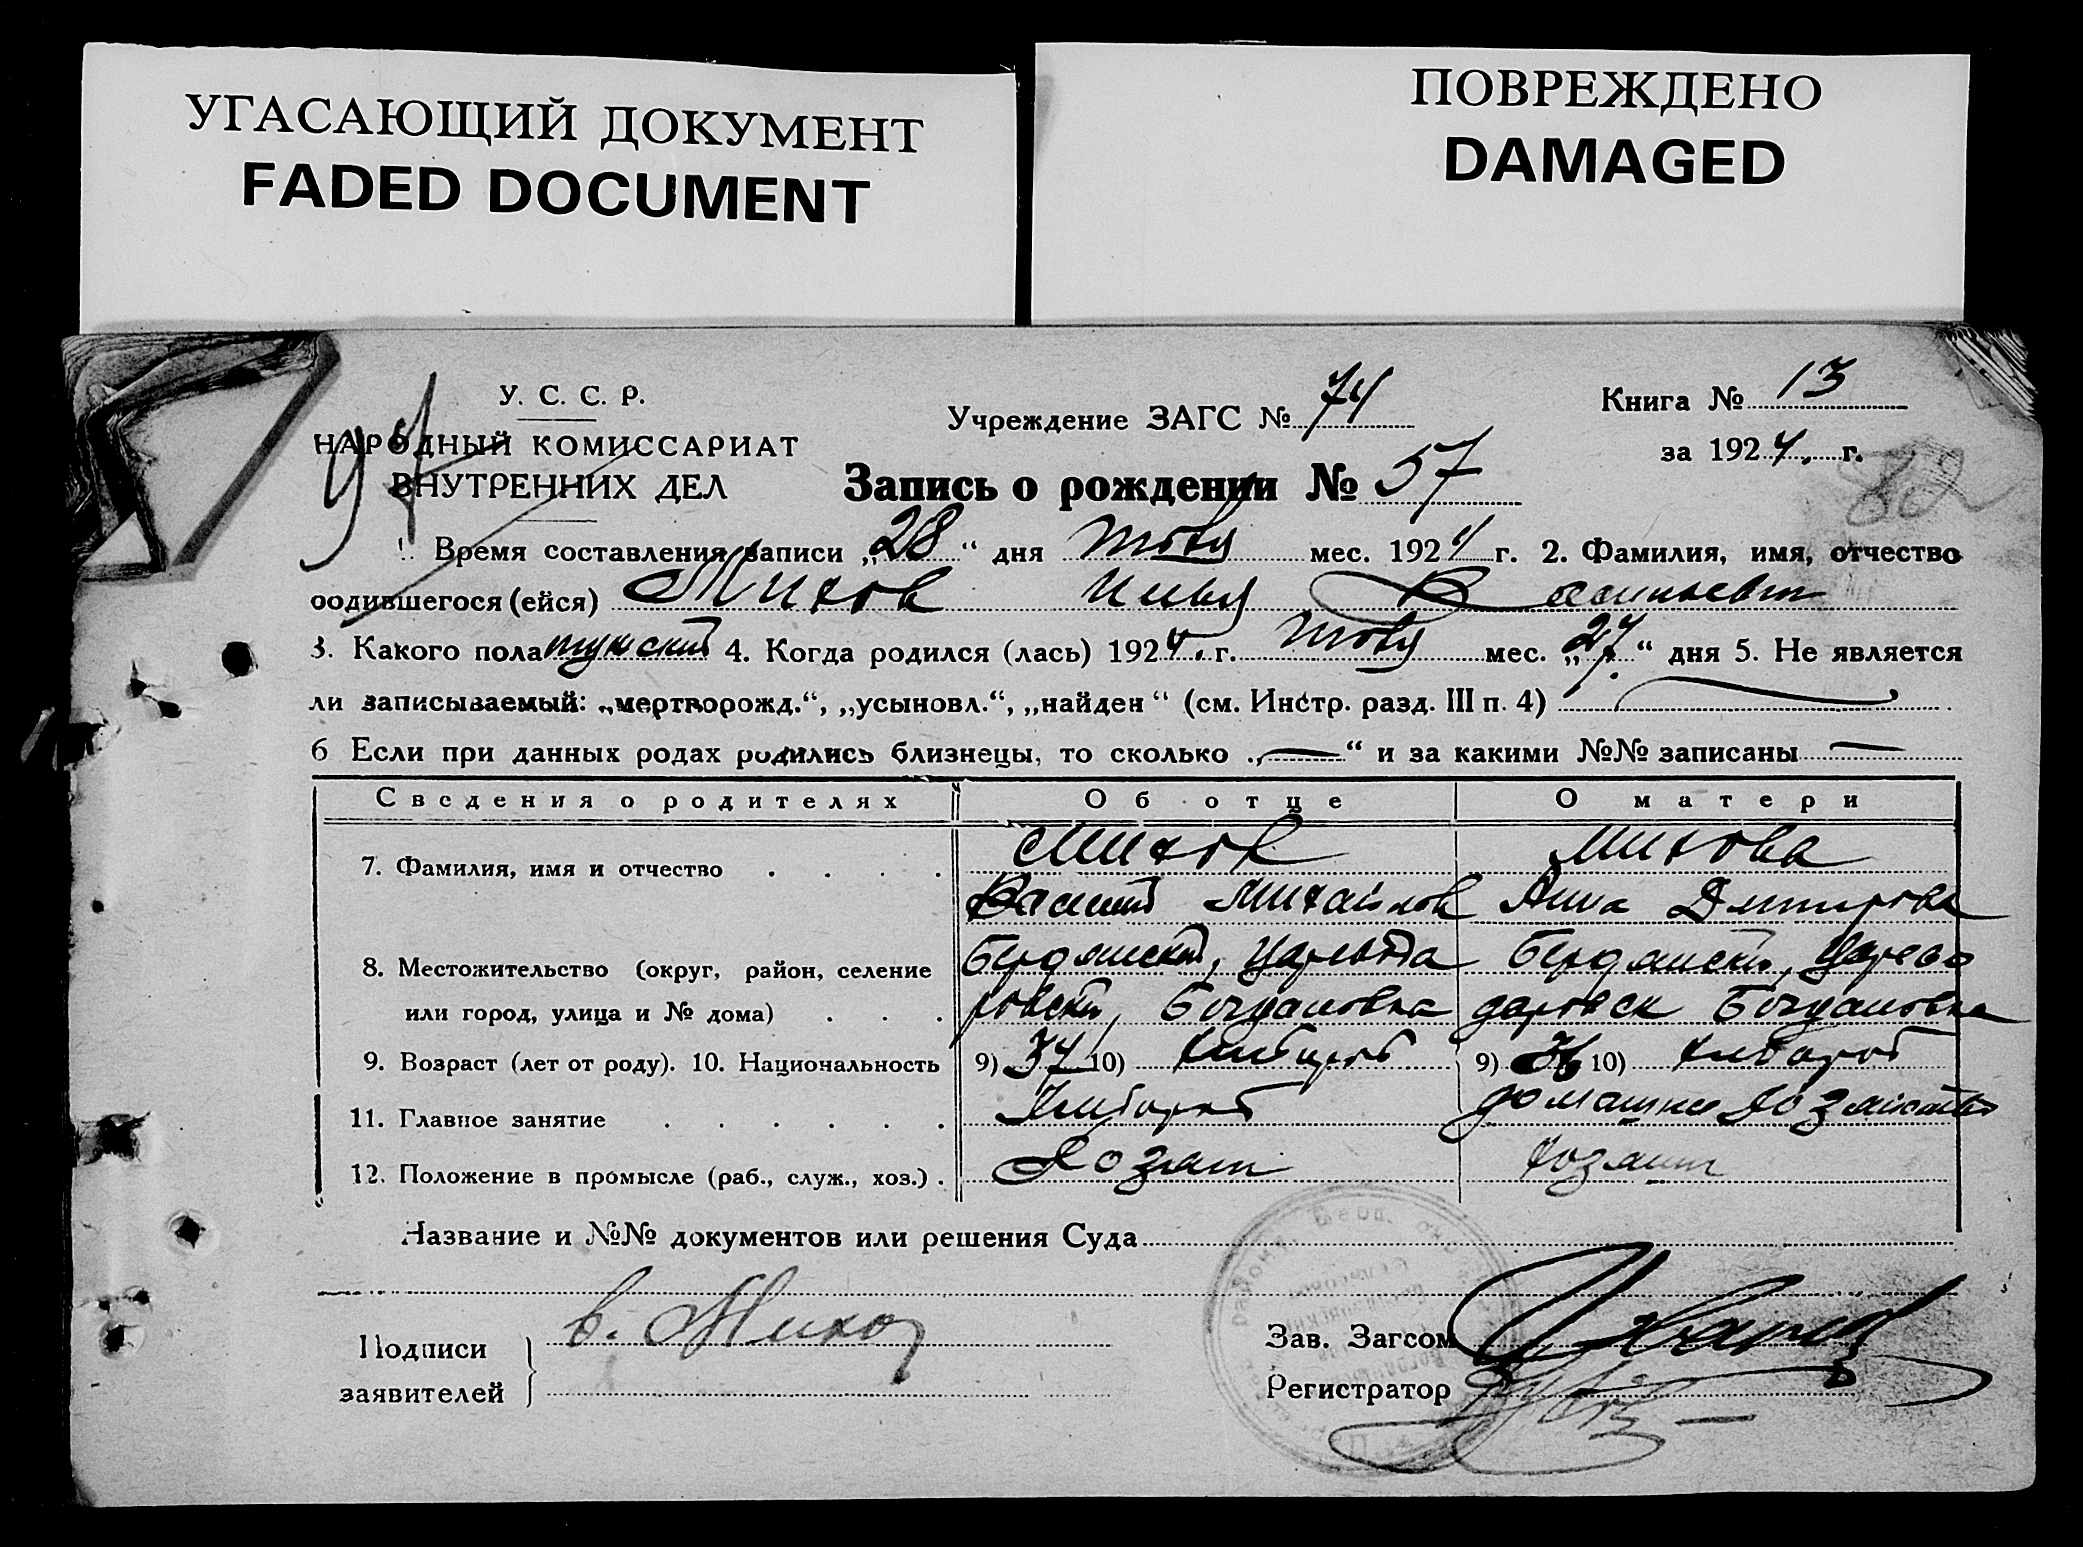 УГАСАЮЩИЙ ДОКУМЕНТ
FADED DOCUMENT
ПОВРЕЖДЕНО
DAMAGED
У. С. С. Р.
НАРОДНЫЙ КОМИССАРИАТ
ВНУТРЕННИХ ДЕЛ
Учреждение ЗАГС № 74
Книга № 13
за 1924 г.
82
Запись о рождении № 57
1. Время составления записи „28“ дня мес. 1924 г. 2. Фамилия, имя, отчество
родившегося (ейся) Михов Васильевич
3. Какого пола мужской 4. Когда родился (лась) 1924 г. мес. „27“ дня 5. Не является
ли записываемый: „мертворожд.“, „усыновл.“, „найден“ (см. Инстр. разд. III п. 4)
6 Если при данных родах родились близнецы, то сколько „—“ и за какими №№ записаны —
Сведения о родителях Об отце О матери
7. Фамилия, имя и отчество Михов Михова
Василий Михайлов Анна Дмитрова
8. Местожительство (округ, район, селение Бердянский, Цареводa Бердянск, Царево
или город, улица и № дома) ровский, Богдановка даровск Богдановка
9. Возраст (лет от роду). 10. Национальность 9) 37 10) 9) 36 10)
11. Главное занятие Хлебороб домашнее хозяйство
12. Положение в промысле (раб., служ., хоз.) Хозяин хозяин
Название и №№ документов или решения Суда
Подписи
заявителей
В. Михов
Зав. Загсом
Регистратор